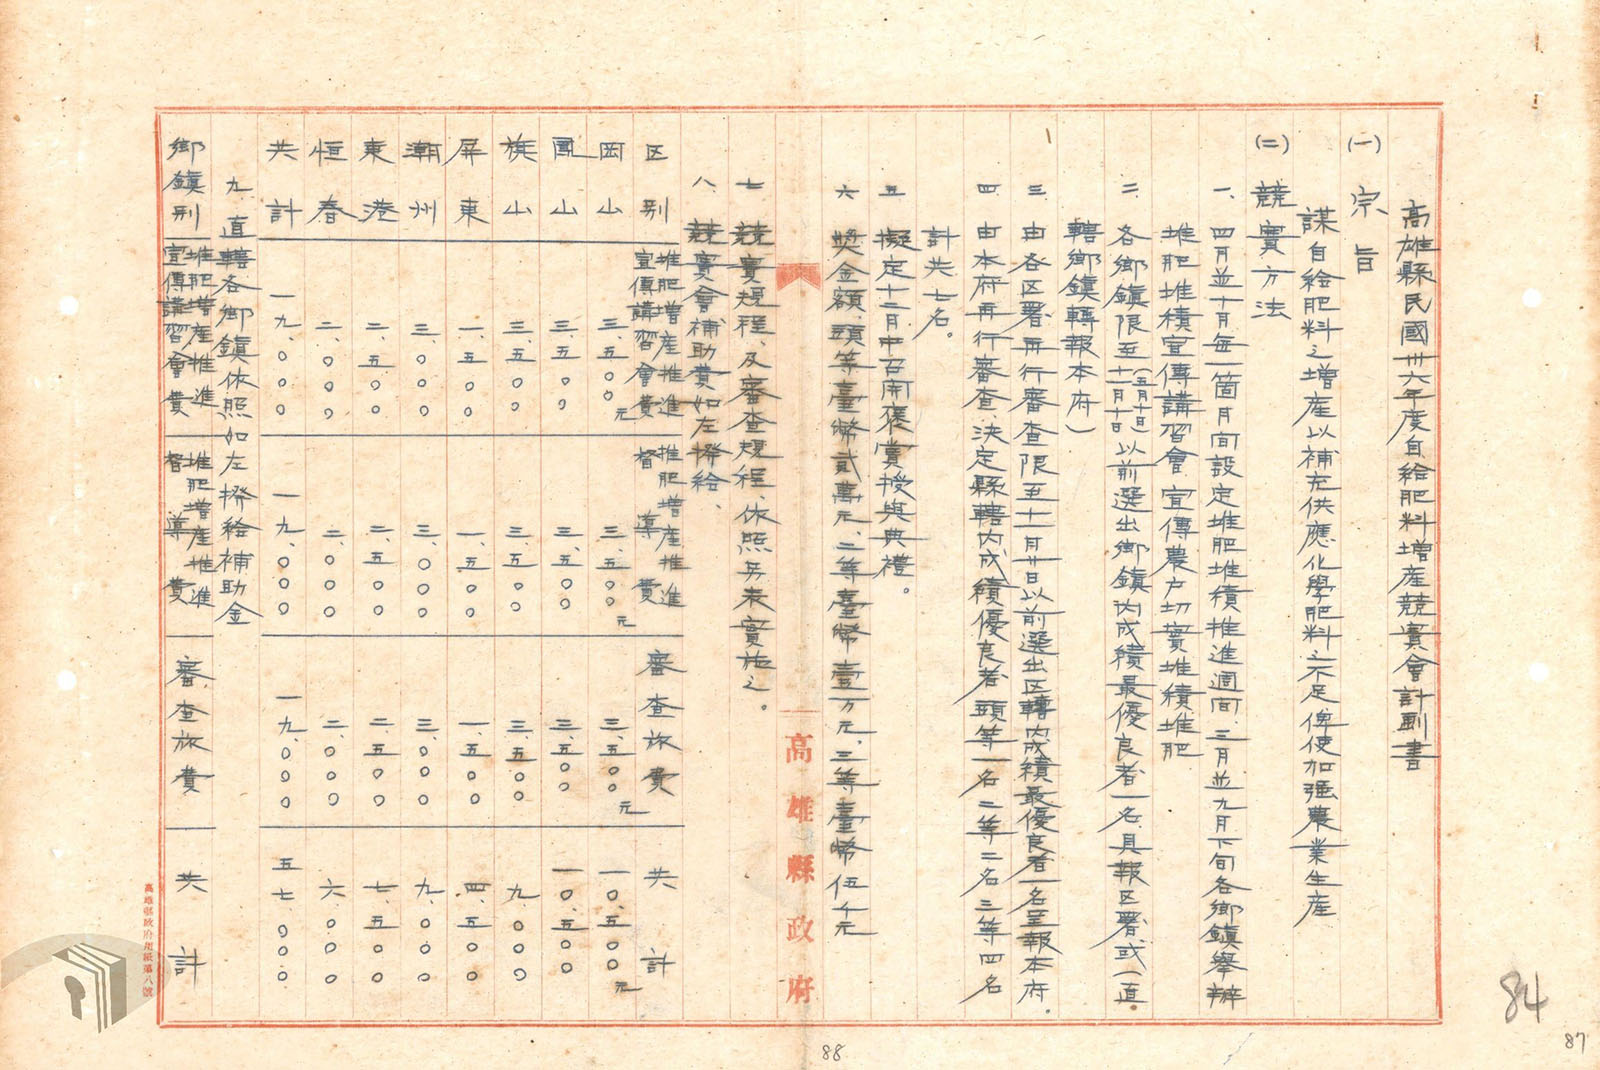 高雄縣民國卅六年度自給肥料增產競賽會計劃書
(一) 宗旨
謀自給肥料之增產以補充供應化學肥料之不足俾使加強農業生產
(二) 競賽方法
一、四月並十月每一箇月間設定堆肥堆積推進週間、三月並九月下旬各鄉鎮舉辦
堆肥堆積宣傳講習會宣傳農戶切實堆積堆肥
二、各鄉鎮限至(五月十日)十一月十日以前選出鄉鎮內成績最優良者一名具報区署或(直
轄鄉鎮轉報本府)
三、由各区署再行審查限至十一月廿日以前選出区轄內成績最優良者一名呈報本府。
四、由本府再行審查、決定縣轄內成績優良者頭等一名二等二名三等四名
計共七名。
五、擬定十二月中召開褒賞授與典禮。
六、獎金額頭等臺幣貳萬元、二等臺幣壹万元、三等臺幣伍千元
七、競賽規程、及審查規程、依照另表實施之。
八、競賽會補助費如左撥給、
区別 堆肥增產推進宣傳講習會費 堆肥增產推進督導費 審查旅費 共計
岡山 三、五〇〇元 三、五〇〇元 三、五〇〇元 一〇、五〇〇元
鳳山 三、五〇〇 三、五〇〇 三、五〇〇 一〇、五〇〇
旗山 三、五〇〇 三、五〇〇 三、五〇〇 九、〇〇〇
屏東 一、五〇〇 一、五〇〇 一、五〇〇 四、五〇〇
潮州 三、〇〇〇 三、〇〇〇 三、〇〇〇 九、〇〇〇
東港 二、五〇〇 二、五〇〇 二、五〇〇 七、五〇〇
恒春 二、〇〇〇 二、〇〇〇 二、〇〇〇 六、〇〇〇
共計 一九、〇〇〇 一九、〇〇〇 一九、〇〇〇 五七、〇〇〇
九、直轄各鄉鎮依照如左撥給補助金
鄉鎮別 堆肥增產推進宣傳講習會費 堆肥增產推進督導費 審查旅費 共計
高雄縣政府
84
87
88